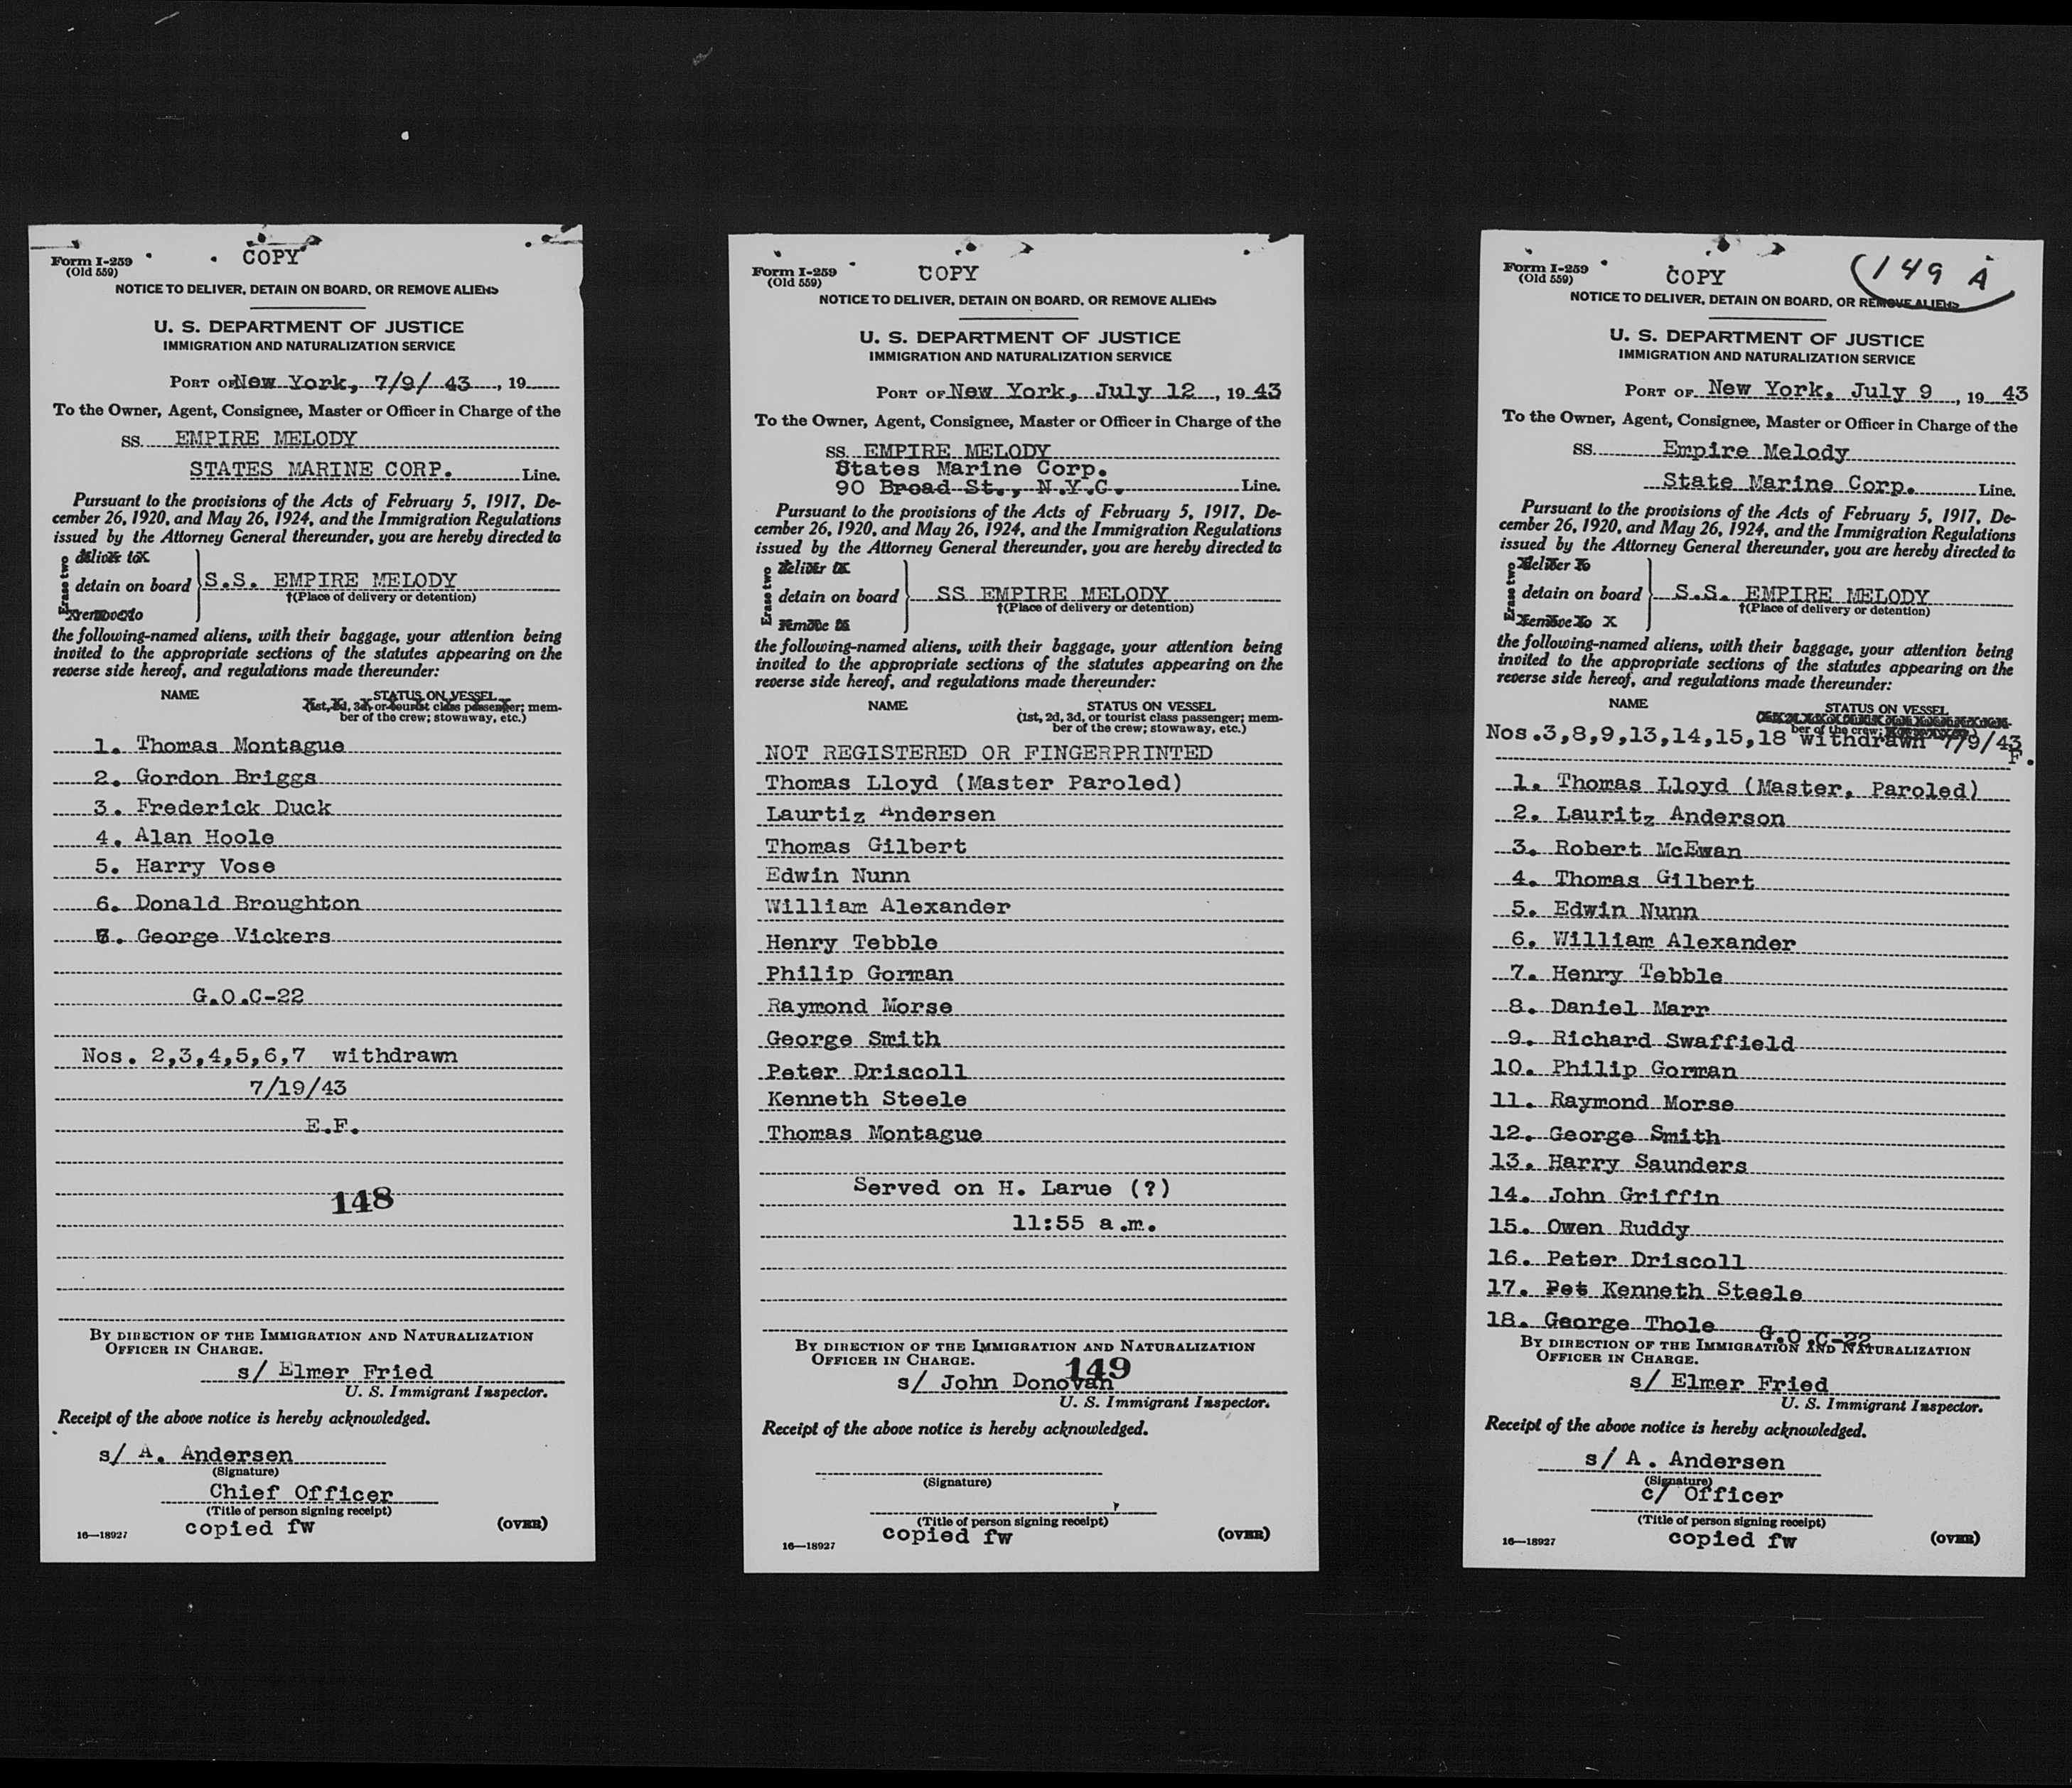 Form I-259
(Old 559)
COPY
NOTICE TO DELIVER, DETAIN ON BOARD, OR REMOVE ALIENS
U. S. DEPARTMENT OF JUSTICE
IMMIGRATION AND NATURALIZATION SERVICE
PORT OF New York, 7/9/ 43, 19
To the Owner, Agent, Consignee, Master or Officer in Charge of the
SS. EMPIRE MELODY
STATES MARINE CORP. Line.
Pursuant to the provisions of the Acts of February 5, 1917, De-
cember 26, 1920, and May 26, 1924, and the Immigration Regulations
issued by the Attorney General thereunder, you are hereby directed to
Erase two
deliver to
detain on board S.S. EMPIRE MELODY
†(Place of delivery or detention)
remove to
the following-named aliens, with their baggage, your attention being
invited to the appropriate sections of the statutes appearing on the
reverse side hereof, and regulations made thereunder:
NAME STATUS ON VESSEL
(1st, 2d, 3d, or tourist class passenger; mem-
ber of the crew; stowaway, etc.)
1. Thomas Montague
2. Gordon Briggs
3. Frederick Duck
4. Alan Hoole
5. Harry Vose
6. Donald Broughton
7. George Vickers
G.O.C-22
Nos. 2,3,4,5,6,7 withdrawn
7/19/43
E.F.
148
BY DIRECTION OF THE IMMIGRATION AND NATURALIZATION
OFFICER IN CHARGE.
s/ Elmer Fried
U. S. Immigrant Inspector.
Receipt of the above notice is hereby acknowledged.
s/ A. Andersen
(Signature)
Chief Officer
(Title of person signing receipt)
copied fw
16—18927 (OVER)
Form I-259
(Old 559)
COPY
NOTICE TO DELIVER, DETAIN ON BOARD, OR REMOVE ALIENS
U. S. DEPARTMENT OF JUSTICE
IMMIGRATION AND NATURALIZATION SERVICE
PORT OF New York, July 12, 19 43
To the Owner, Agent, Consignee, Master or Officer in Charge of the
SS. EMPIRE MELODY
States Marine Corp.
90 Broad St., N.Y.C. Line.
Pursuant to the provisions of the Acts of February 5, 1917, De-
cember 26, 1920, and May 26, 1924, and the Immigration Regulations
issued by the Attorney General thereunder, you are hereby directed to
Erase two
deliver to
detain on board SS EMPIRE MELODY
†(Place of delivery or detention)
remove to
the following-named aliens, with their baggage, your attention being
invited to the appropriate sections of the statutes appearing on the
reverse side hereof, and regulations made thereunder:
NAME STATUS ON VESSEL
(1st, 2d, 3d, or tourist class passenger; mem-
ber of the crew; stowaway, etc.)
NOT REGISTERED OR FINGERPRINTED
Thomas Lloyd (Master Paroled)
Laurtiz Andersen
Thomas Gilbert
Edwin Nunn
William Alexander
Henry Tebble
Philip Gorman
Raymond Morse
George Smith
Peter Driscoll
Kenneth Steele
Thomas Montague
Served on H. Larue (?)
11:55 a.m.
BY DIRECTION OF THE IMMIGRATION AND NATURALIZATION
OFFICER IN CHARGE.
149
s/ John Donovan
U. S. Immigrant Inspector.
Receipt of the above notice is hereby acknowledged.
(Signature)
(Title of person signing receipt)
copied fw
16—18927 (OVER)
Form I-259
(Old 559)
COPY
149 A
NOTICE TO DELIVER, DETAIN ON BOARD, OR REMOVE ALIENS
U. S. DEPARTMENT OF JUSTICE
IMMIGRATION AND NATURALIZATION SERVICE
PORT OF New York, July 9, 19 43
To the Owner, Agent, Consignee, Master or Officer in Charge of the
SS. Empire Melody
State Marine Corp. Line.
Pursuant to the provisions of the Acts of February 5, 1917, De-
cember 26, 1920, and May 26, 1924, and the Immigration Regulations
issued by the Attorney General thereunder, you are hereby directed to
Erase two
deliver to
detain on board S.S. EMPIRE MELODY
†(Place of delivery or detention)
remove to X
the following-named aliens, with their baggage, your attention being
invited to the appropriate sections of the statutes appearing on the
reverse side hereof, and regulations made thereunder:
NAME STATUS ON VESSEL
ber of the crew;
Nos.3,8,9,13,14,15,18 withdrawn 7/9/43
F.
1. Thomas Lloyd (Master, Paroled)
2. Lauritz Anderson
3. Robert McEwan
4. Thomas Gilbert
5. Edwin Nunn
6. William Alexander
7. Henry Tebble
8. Daniel Marr
9. Richard Swaffield
10. Philip Gorman
11. Raymond Morse
12. George Smith
13. Harry Saunders
14. John Griffin
15. Owen Ruddy
16. Peter Driscoll
17. Pet Kenneth Steele
18. George Thole G.O.C-22
BY DIRECTION OF THE IMMIGRATION AND NATURALIZATION
OFFICER IN CHARGE.
s/ Elmer Fried
U. S. Immigrant Inspector.
Receipt of the above notice is hereby acknowledged.
s/ A. Andersen
(Signature)
c/ Officer
(Title of person signing receipt)
copied fw
16—18927 (OVER)